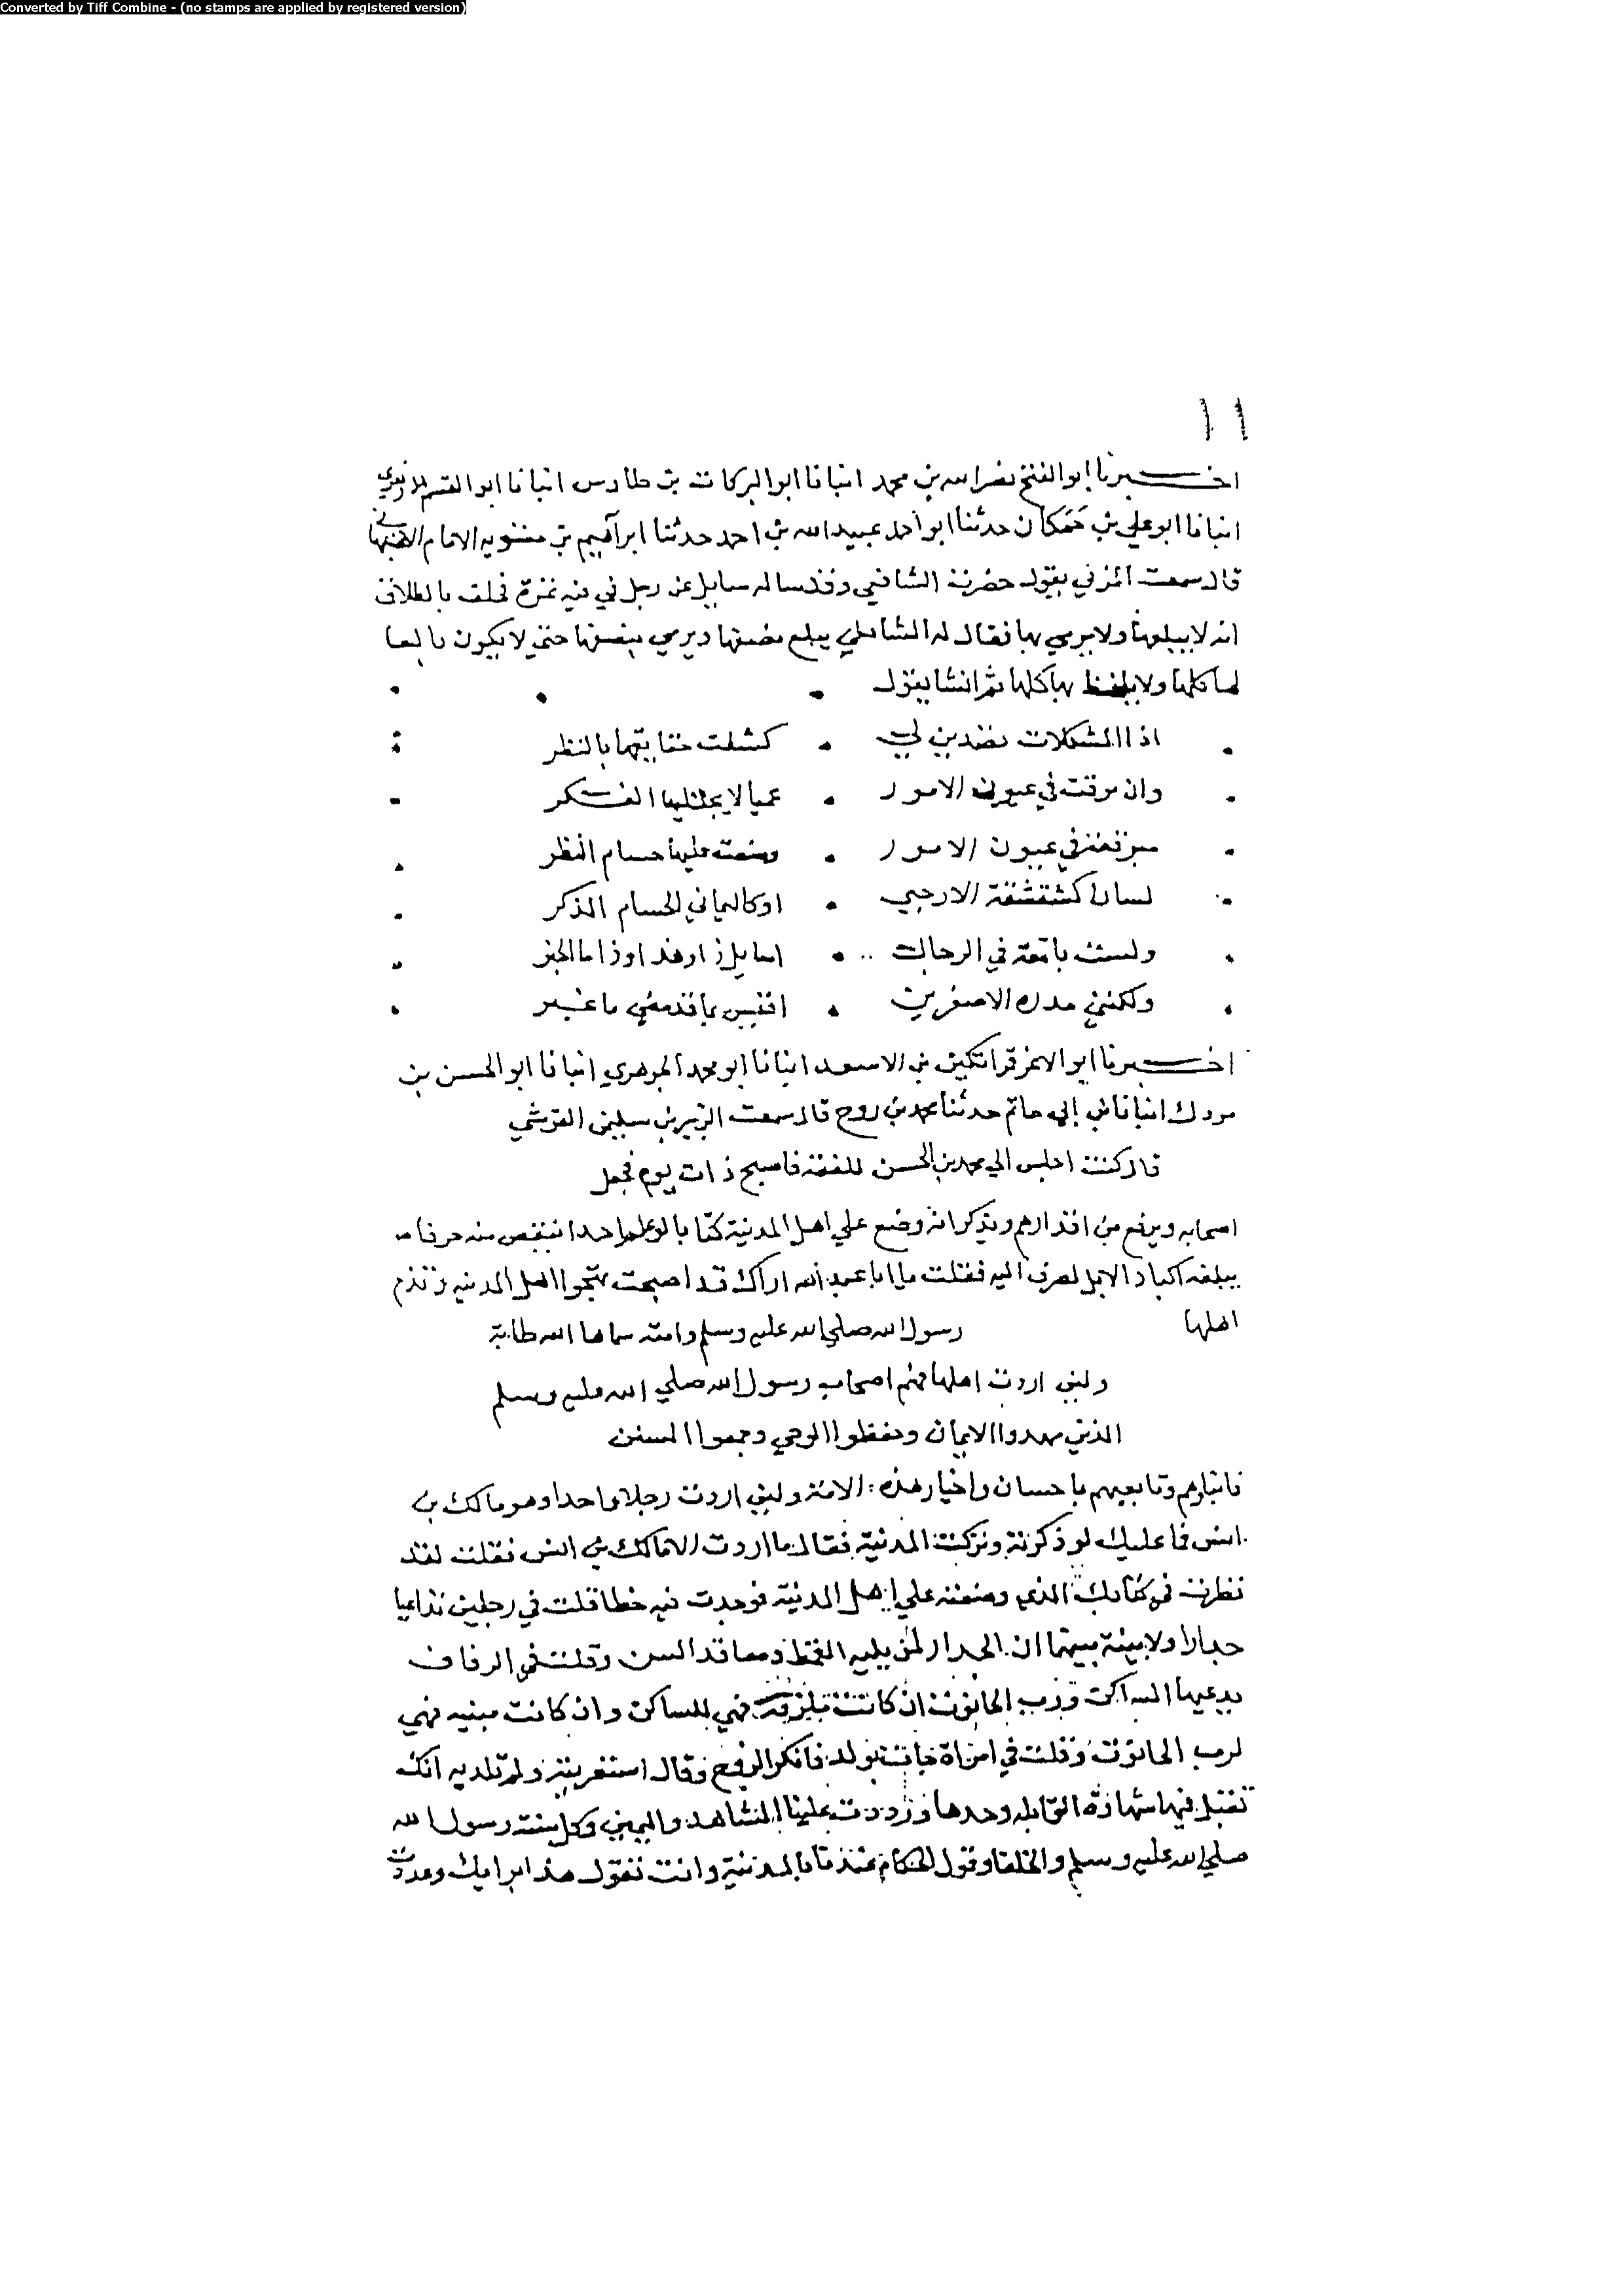 Converted by Tiff Combine - (no stamps are applied by registered version)
١١
اخبرنا ابو الفتح نصر الله بن محمد انبانا ابو البركات بن طاوس انبانا ابو القسم الازهري
انبانا ابو علي بن حَمَكان حدثنا ابو احمد عبيد الله بن احمد حدثنا ابرآهيم بن متويه الامام الاصبهاني
قال سمعت المزني يقول حضرت الشافعي وقد ساله سايل عن رجل في فيه تمرة فحلف بالطلاق
انه لا يبلعها ولا يرمي بها فقال له الشافعي يبلع نصفها ويرمي بنصفها حتي لا يكون بالعا
لها كلها ولا يلفظ بها كلها ثم انشا يقول
اذا المشكلات تصدين لي كشفت حقايقها بالنظر
وان برقت في عيون الامور عميا لا يجتليها الفكر
في عيون الامور وضعت عليها حسام النظر
لسانا كشقشقة الارحبي او كاليماني الحسام الذكر
ولست بامعة في الرجال اسايل ذا وهذا وذا ما الخبر
ولكنني مدره الاصغرين اقيس بما قد مضي ما غبر
اخبرنا ابو الاعز قراتكين بن الاسعد انبانا ابو محمد الجوهري انبانا ابو الحسن بن
مردك انبانا بن ابي حاتم حدثنا محمد بن روح قال سمعت الزبير بن سليمن القرشي
قال كنت اجلس الي محمد بن الحسن للفقه فاصبح ذات يوم فجعل
اصحابه ويرفع من اقدارهم ويذكر انه وضع علي اهل المدينة كتابا لو علم احدا ينقص منه حرفا
يبلغه اكباد الابل لصرف اليه فقلت يا ابا عبد الله اراك قد اصبحت تهجوا اهل المدينه وتذم
اهلها رسول الله صلي الله عليه وسلم وامنه سماها الله طابة
ولين اردت اهلها فهم اصحاب رسول الله صلي الله عليه وسلم
الذين مهدوا الايمان وحفظوا الوحي وجمعوا السنن
فابناوهم وتابعيهم باحسان واخيار هذه الامة ولين اردت رجلا واحدا وهو مالك بن
انس فما عليك لو ذكرته وتركت المدينة فقال ما اردت الا مالك بن انس فقلت لقد
نظرت في كتابك الذي وضعته علي اهل المدينة فوجدت فيه خطا قلت في رجلين تداعيا
جدارا ولا بينة بينهما ان الجدار لمن يليه القمط ومعاقد اللبن وقلت في الرفاف
يدعيها الساكن ورب الحانوت ان كانت ملزقة فهي للساكن وان كانت مبنيه فهي
لرب الحانوت وقلت في امراة جات بولد فانكر الزوج وقال استعرتيه ولم تلديه انك
تقبل فيها شهادة القابله وحدها ورددت علينا الشاهد واليمين وكل سنة رسول الله
صلي الله عليه وسلم والخلفا وقول الحكام عندنا بالمدينة وانت تقول هذا برايك وعددت